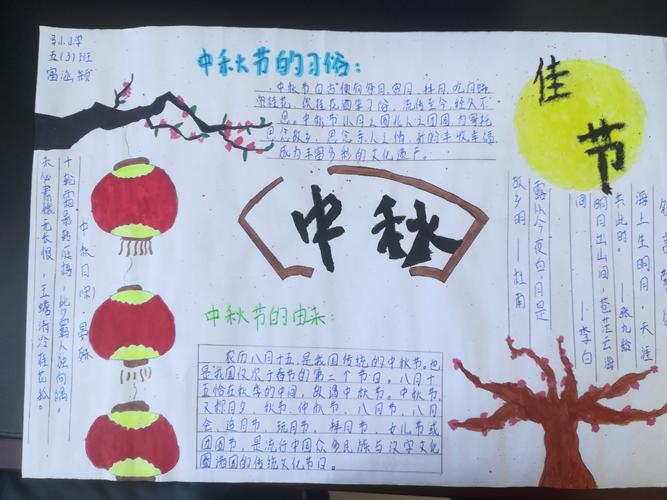 五(3)班
中秋节的习俗：
中秋节自古便有祭月、赏月、拜月、吃月饼
赏桂花、饮桂花酒等习俗，流传至今，经久不
息。中秋节以月之圆兆人之团圆，为寄托
思念故乡，思念亲人之情，祈盼丰收幸福，
成为丰富多彩的文化遗产。
佳节
中秋
十轮霜影转庭梧，此夕羁人独向隅。
未必素娥无长恨，玉蟾清冷桂花孤。
中秋月
海上生明月，天涯
共此时。——张九龄
明月出山间，苍茫云海
间
——李白
露从今夜白，月是
故乡明——杜甫
中秋节的由来：
农历八月十五，是我国传统的中秋节。也
是我国仅次于春节的第二个节日。八月十
五恰在秋季的中间，故谓中秋节。中秋节
又称月夕、秋节、仲秋节、八月节、八月
会、追月节、玩月节、拜月节、女儿节或
团圆节，是流行中国众多民族与汉字文化
圈诸国的传统文化节日。